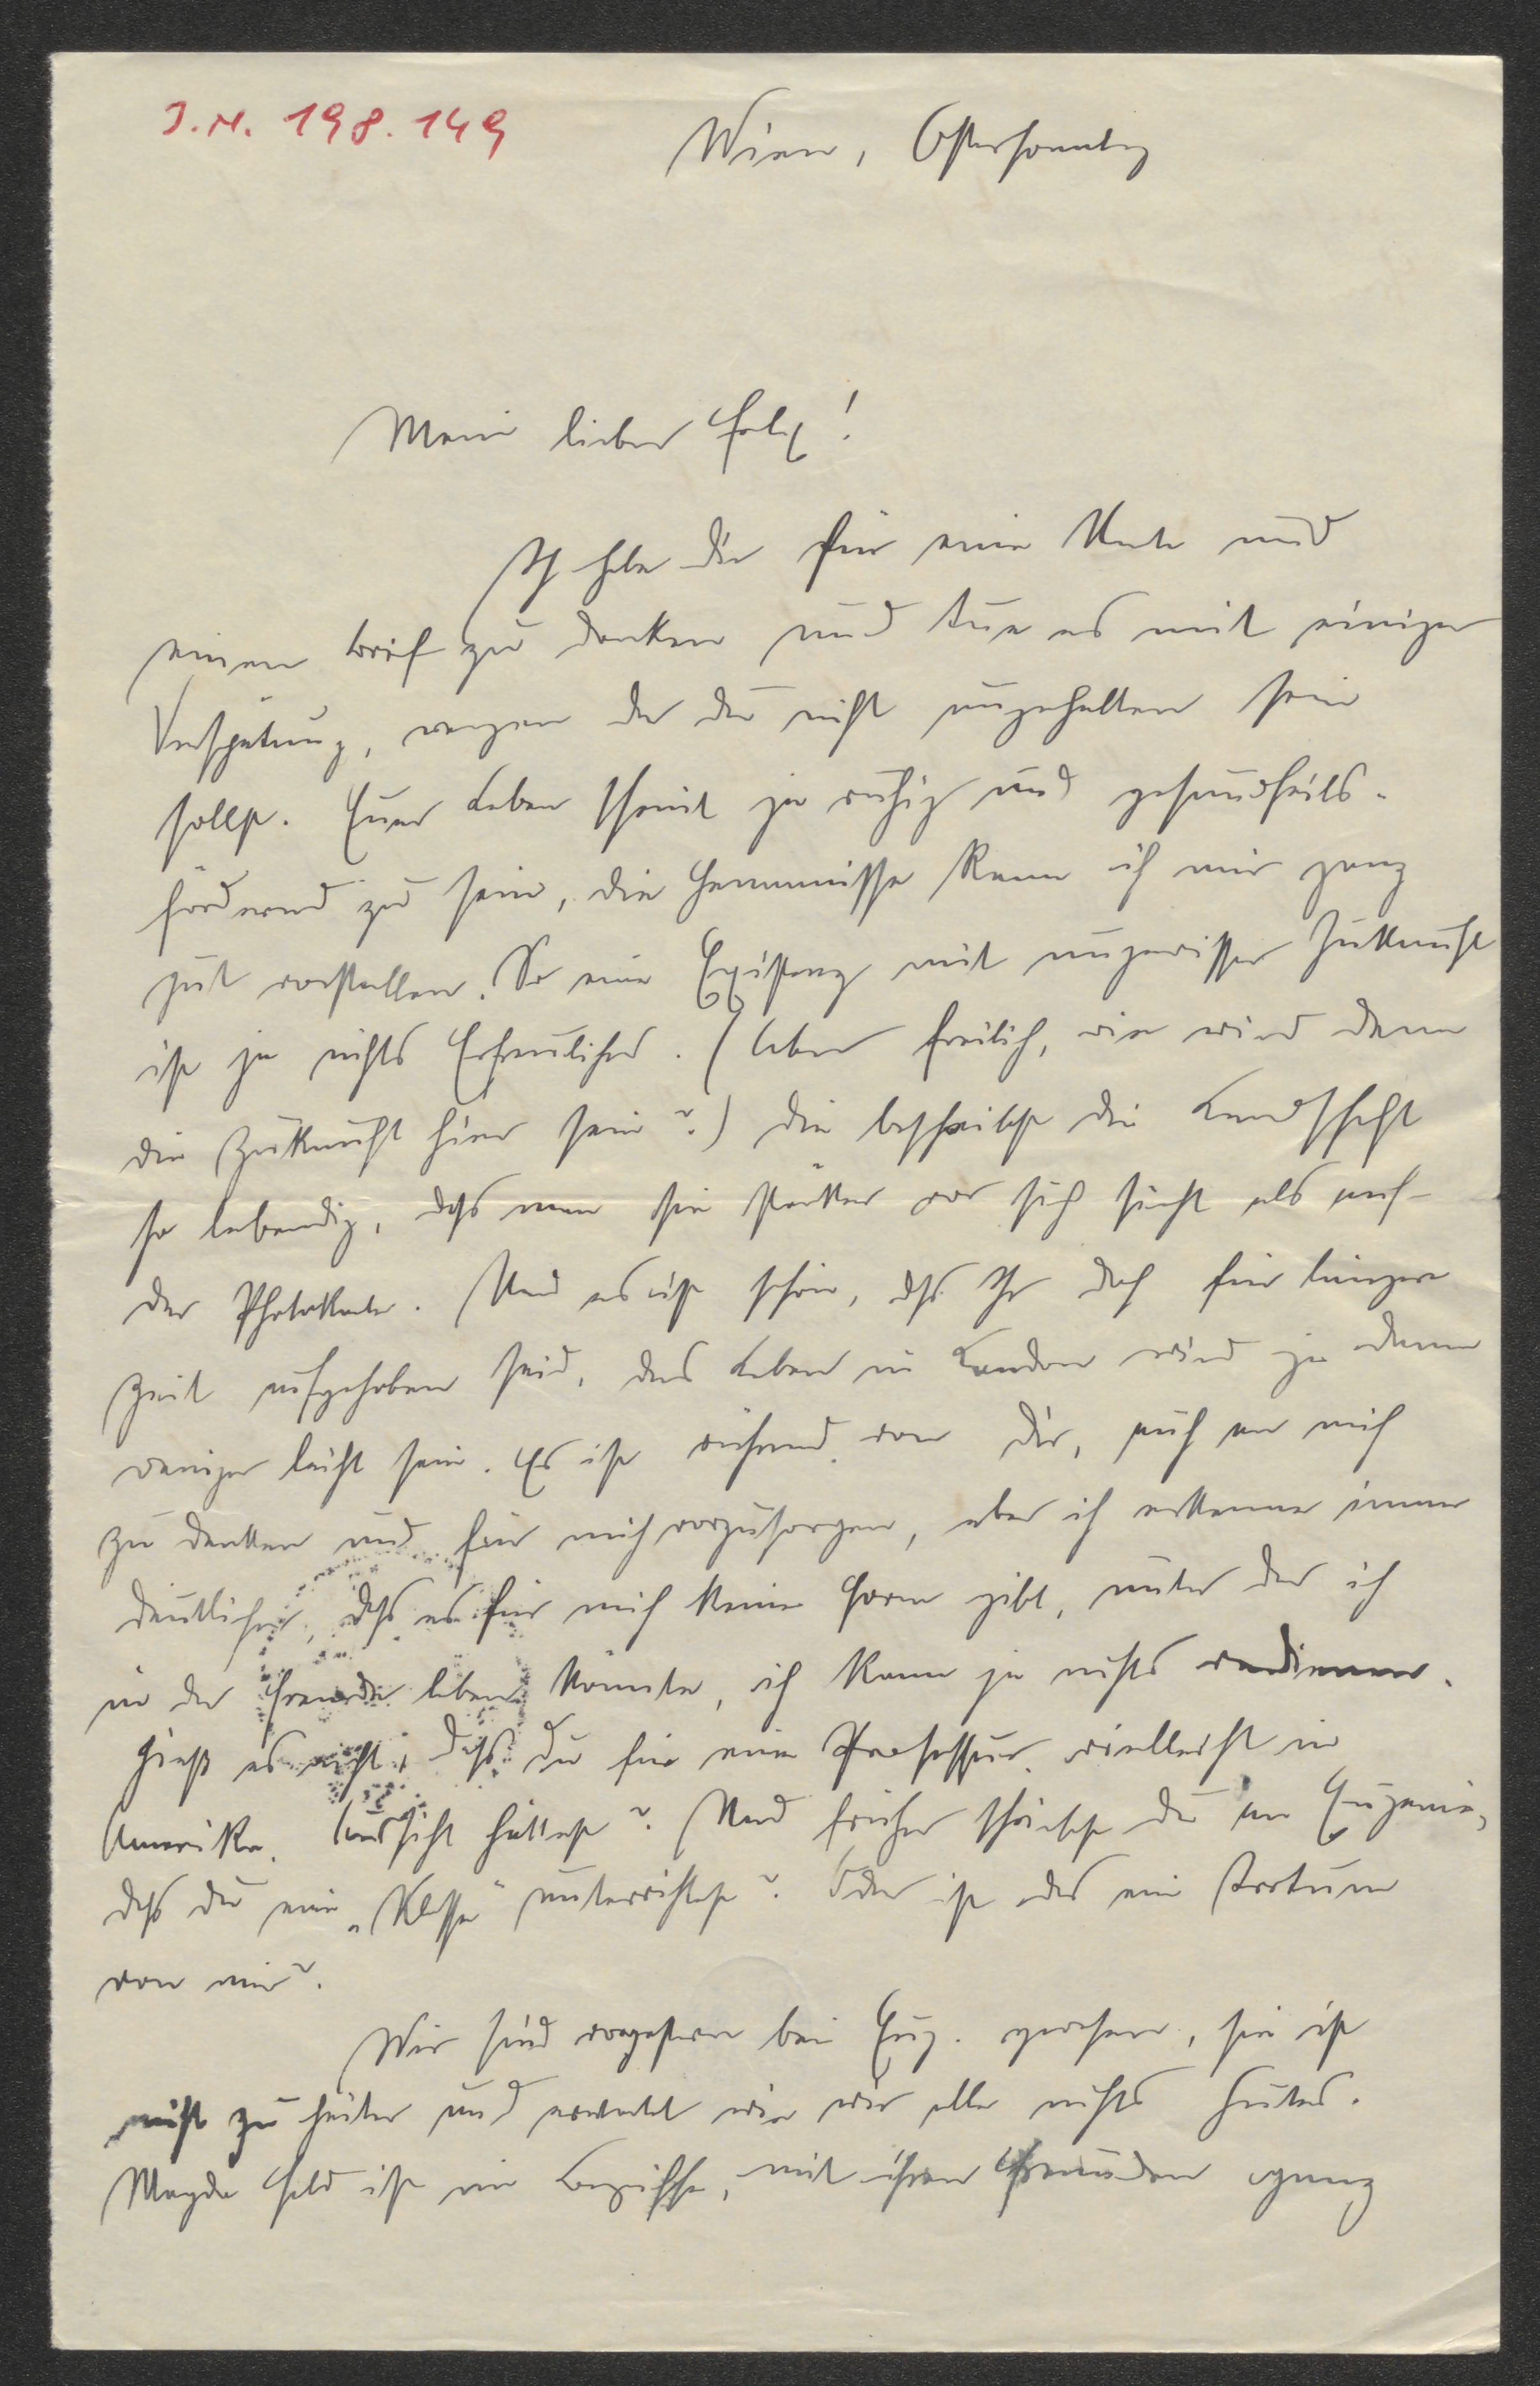 J.N. 198.149
Wien, Ostersonntag
Mein lieber Felix!
Ich habe dir für eine Karte und
einen Brief zu danken und tue es mit einiger
Verspätung, wegen der du nicht ungehalten sein
sollst. Euer Leben scheint ja ruhig und gesundheits-
fördernd zu sein, die Hemmnisse kann ich mir ganz
gut vorstellen. So eine Existenz mit ungewisser Zukunft
ist ja nichts Erfreuliches. (Aber freilich, wie wird denn
die Zukunft hier sein?) Du beschreibst die Landschaft
so lebendig, dass man sie stärker vor sich sieht als auf
der Photokarte. Und es ist schön, dass Ihr doch für längere
Zeit aufgehoben seid, das Leben in London wird ja dann
weniger leicht sein. Es ist rührend von dir, auch an mich
zu denken und für mich vorzusorgen, aber ich erkenne immer
deutlicher, dass es für mich keine Form gibt, unter der ich
in der Fremde leben könnte, ich kann ja nichts verdienen.
Hieß es nicht, dass du für eine Professur vielleicht in
Amerika Aussicht hättest? Und früher schriebst du an Eugenie,
dass du eine „Klasse" unterrichtest? Oder ist das ein Irrtum
von mir?
Wir sind vorgestern bei Eug. gewesen, sie ist
nicht zu heiter und erwartet wie wir alle nichts Gutes.
Magda Feld ist im Begriffe, mit ihren Freunden ganz